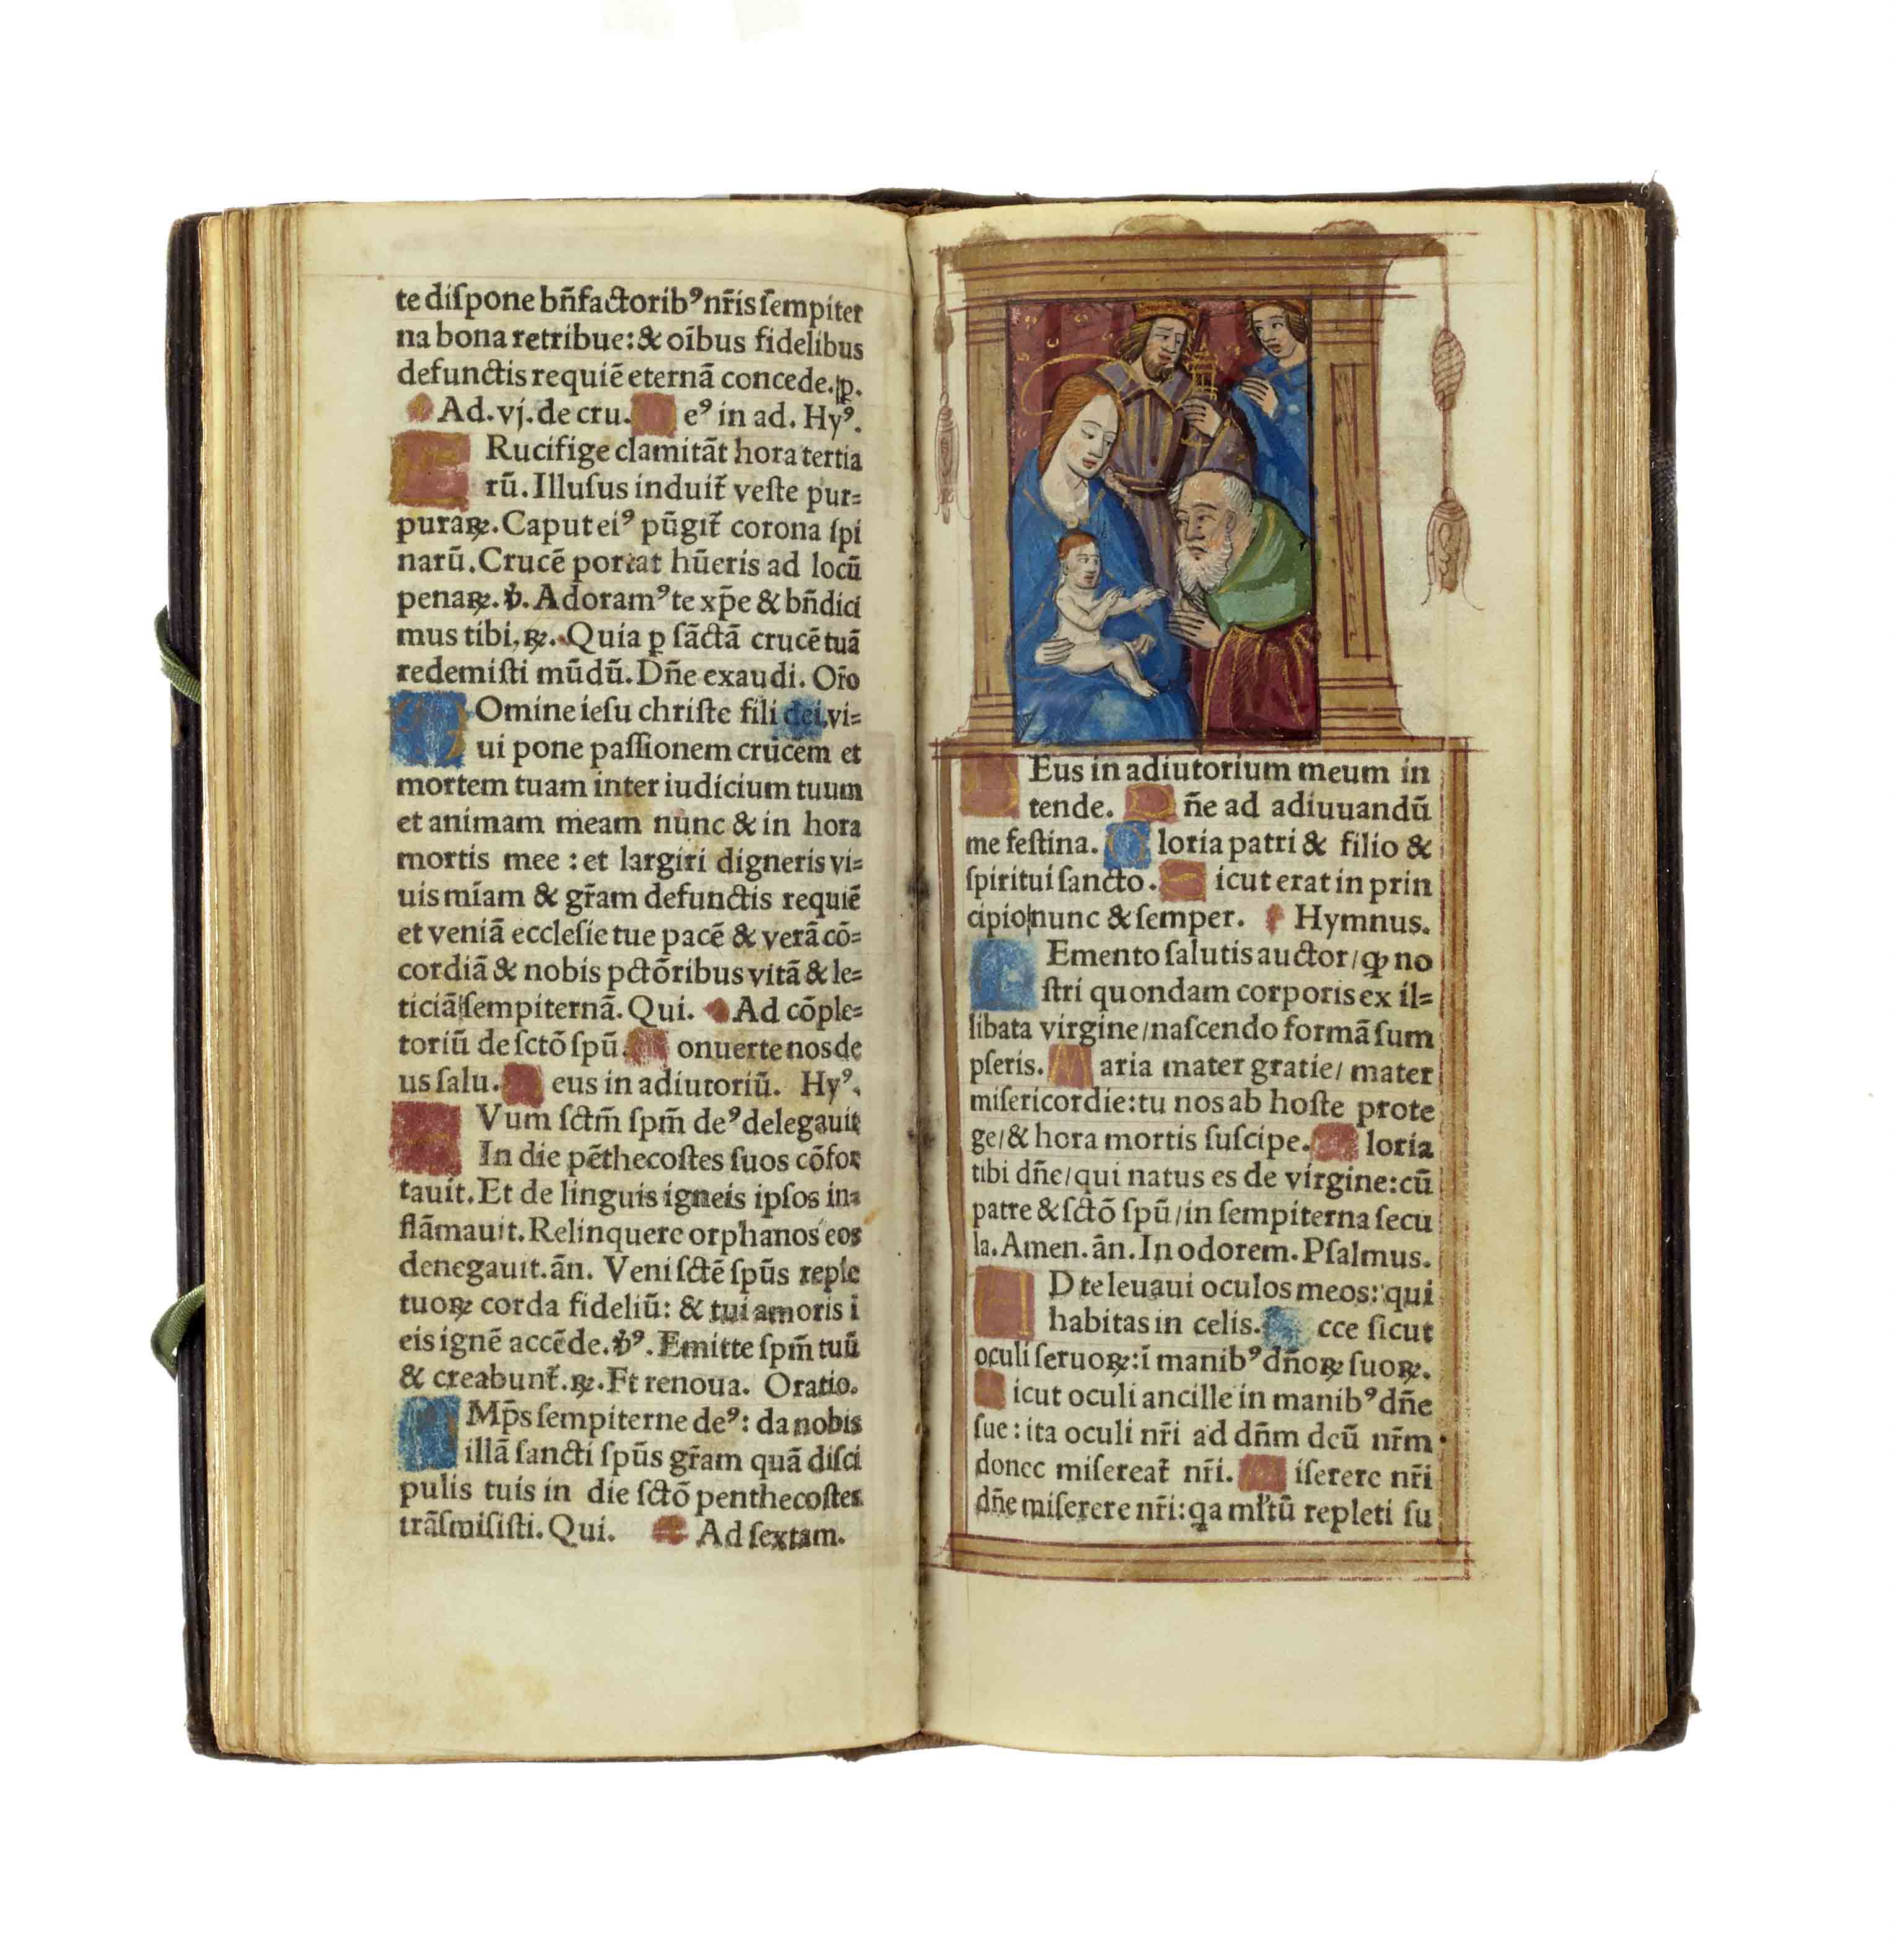 te diſpone bñfactorib⁹ nr̃is ſempiter
na bona retribue: & oĩbus fidelibus
defunctis requiẽ eternã concede. p.
Ad. vj. de cru. e⁹ in ad. Hy⁹.
Rucifige clamitãt hora tertia
rũ. Illuſus induit̃ veſte pur=
puraꝝ. Caput ei⁹ pũgit̃ corona ſpi
narũ. Crucẽ portat hũeris ad locũ
penaꝝ. ꝟ. Adoram⁹ te xp̃e & bñdici
mus tibi. ꝝ. Quia ꝑ ſãctã crucẽ tuã
redemiſti mũdũ. Dñe exaudi. Or̃o
Omine ieſu chriſte fili dei vi=
ui pone paſſionem crucem et
mortem tuam inter iudicium tuum
et animam meam nunc & in hora
mortis mee : et largiri digneris vi=
uis mĩam & gr̃am defunctis requiẽ
et veniã eccleſie tue pacẽ & verã cõ=
cordiã & nobis pctõribus vitã & le=
ticiã ſempiternã. Qui. Ad cõple=
toriũ de ſctõ ſpũ. onuerte nos de
us ſalu. eus in adiutoriũ. Hy⁹.
Vum ſctm̃ ſpm̃ de⁹ delegauit
In die pẽthecoſtes ſuos cõfor
tauit. Et de linguis igneis ipſos in=
flãmauit. Relinquere orphanos eos
denegauit. ãn. Veni ſctẽ ſpũs reple
tuoꝝ corda fideliũ: & tui amoris ĩ
eis ignẽ accẽde. ꝟ⁹. Emitte ſpm̃ tuũ
& creabunt̃. ꝝ. Et renoua. Oratio.
Mp̃s ſempiterne de⁹: da nobis
illã ſancti ſpũs gr̃am quã diſci
pulis tuis in die ſctõ penthecoſtes
trãſmiſiſti. Qui. Ad ſextam.
Eus in adiutorium meum in
tende. D ñe ad adiuuandũ
me feſtina. G loria patri & filio &
ſpiritui ſancto. S icut erat in prin
cipio/nunc & ſemper. Hymnus.
Emento ſalutis auctor/ꝙ no
ſtri quondam corporis ex il=
libata virgine/naſcendo formã ſum
pſeris. M aria mater gratie/ mater
miſericordie: tu nos ab hoſte prote
ge/& hora mortis ſuſcipe. loria
tibi dñe/qui natus es de virgine: cũ
patre & ſctõ ſpũ/in ſempiterna ſecu
la. Amen. ãn. In odorem. Pſalmus.
A D te leuaui oculos meos: qui
habitas in celis. cce ſicut
oculi ſeruoꝝ: ĩ manib⁹ dñoꝝ ſuoꝝ.
icut oculi ancille in manib⁹ dñe
ſue: ita oculi nr̃i ad dñm deũ nr̃m
donec miſereat̃ nr̃i. iſerere nr̃i
dñe miſerere nr̃i: qa ml̃tũ repleti ſu